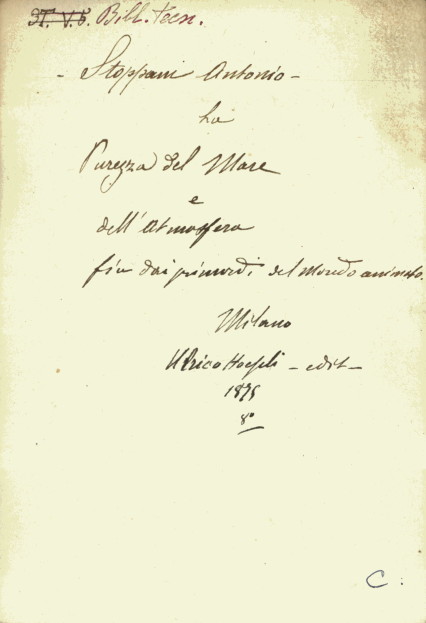 37. V. 5. Bill. Tecn.
- Stoppani Antonio -
La
Purezza del Mare
e
dell' Atmosfera
fin dai primordi del Mondo animato.
Milano
Ulrico Hoepli - edit -
1875
8°
C.